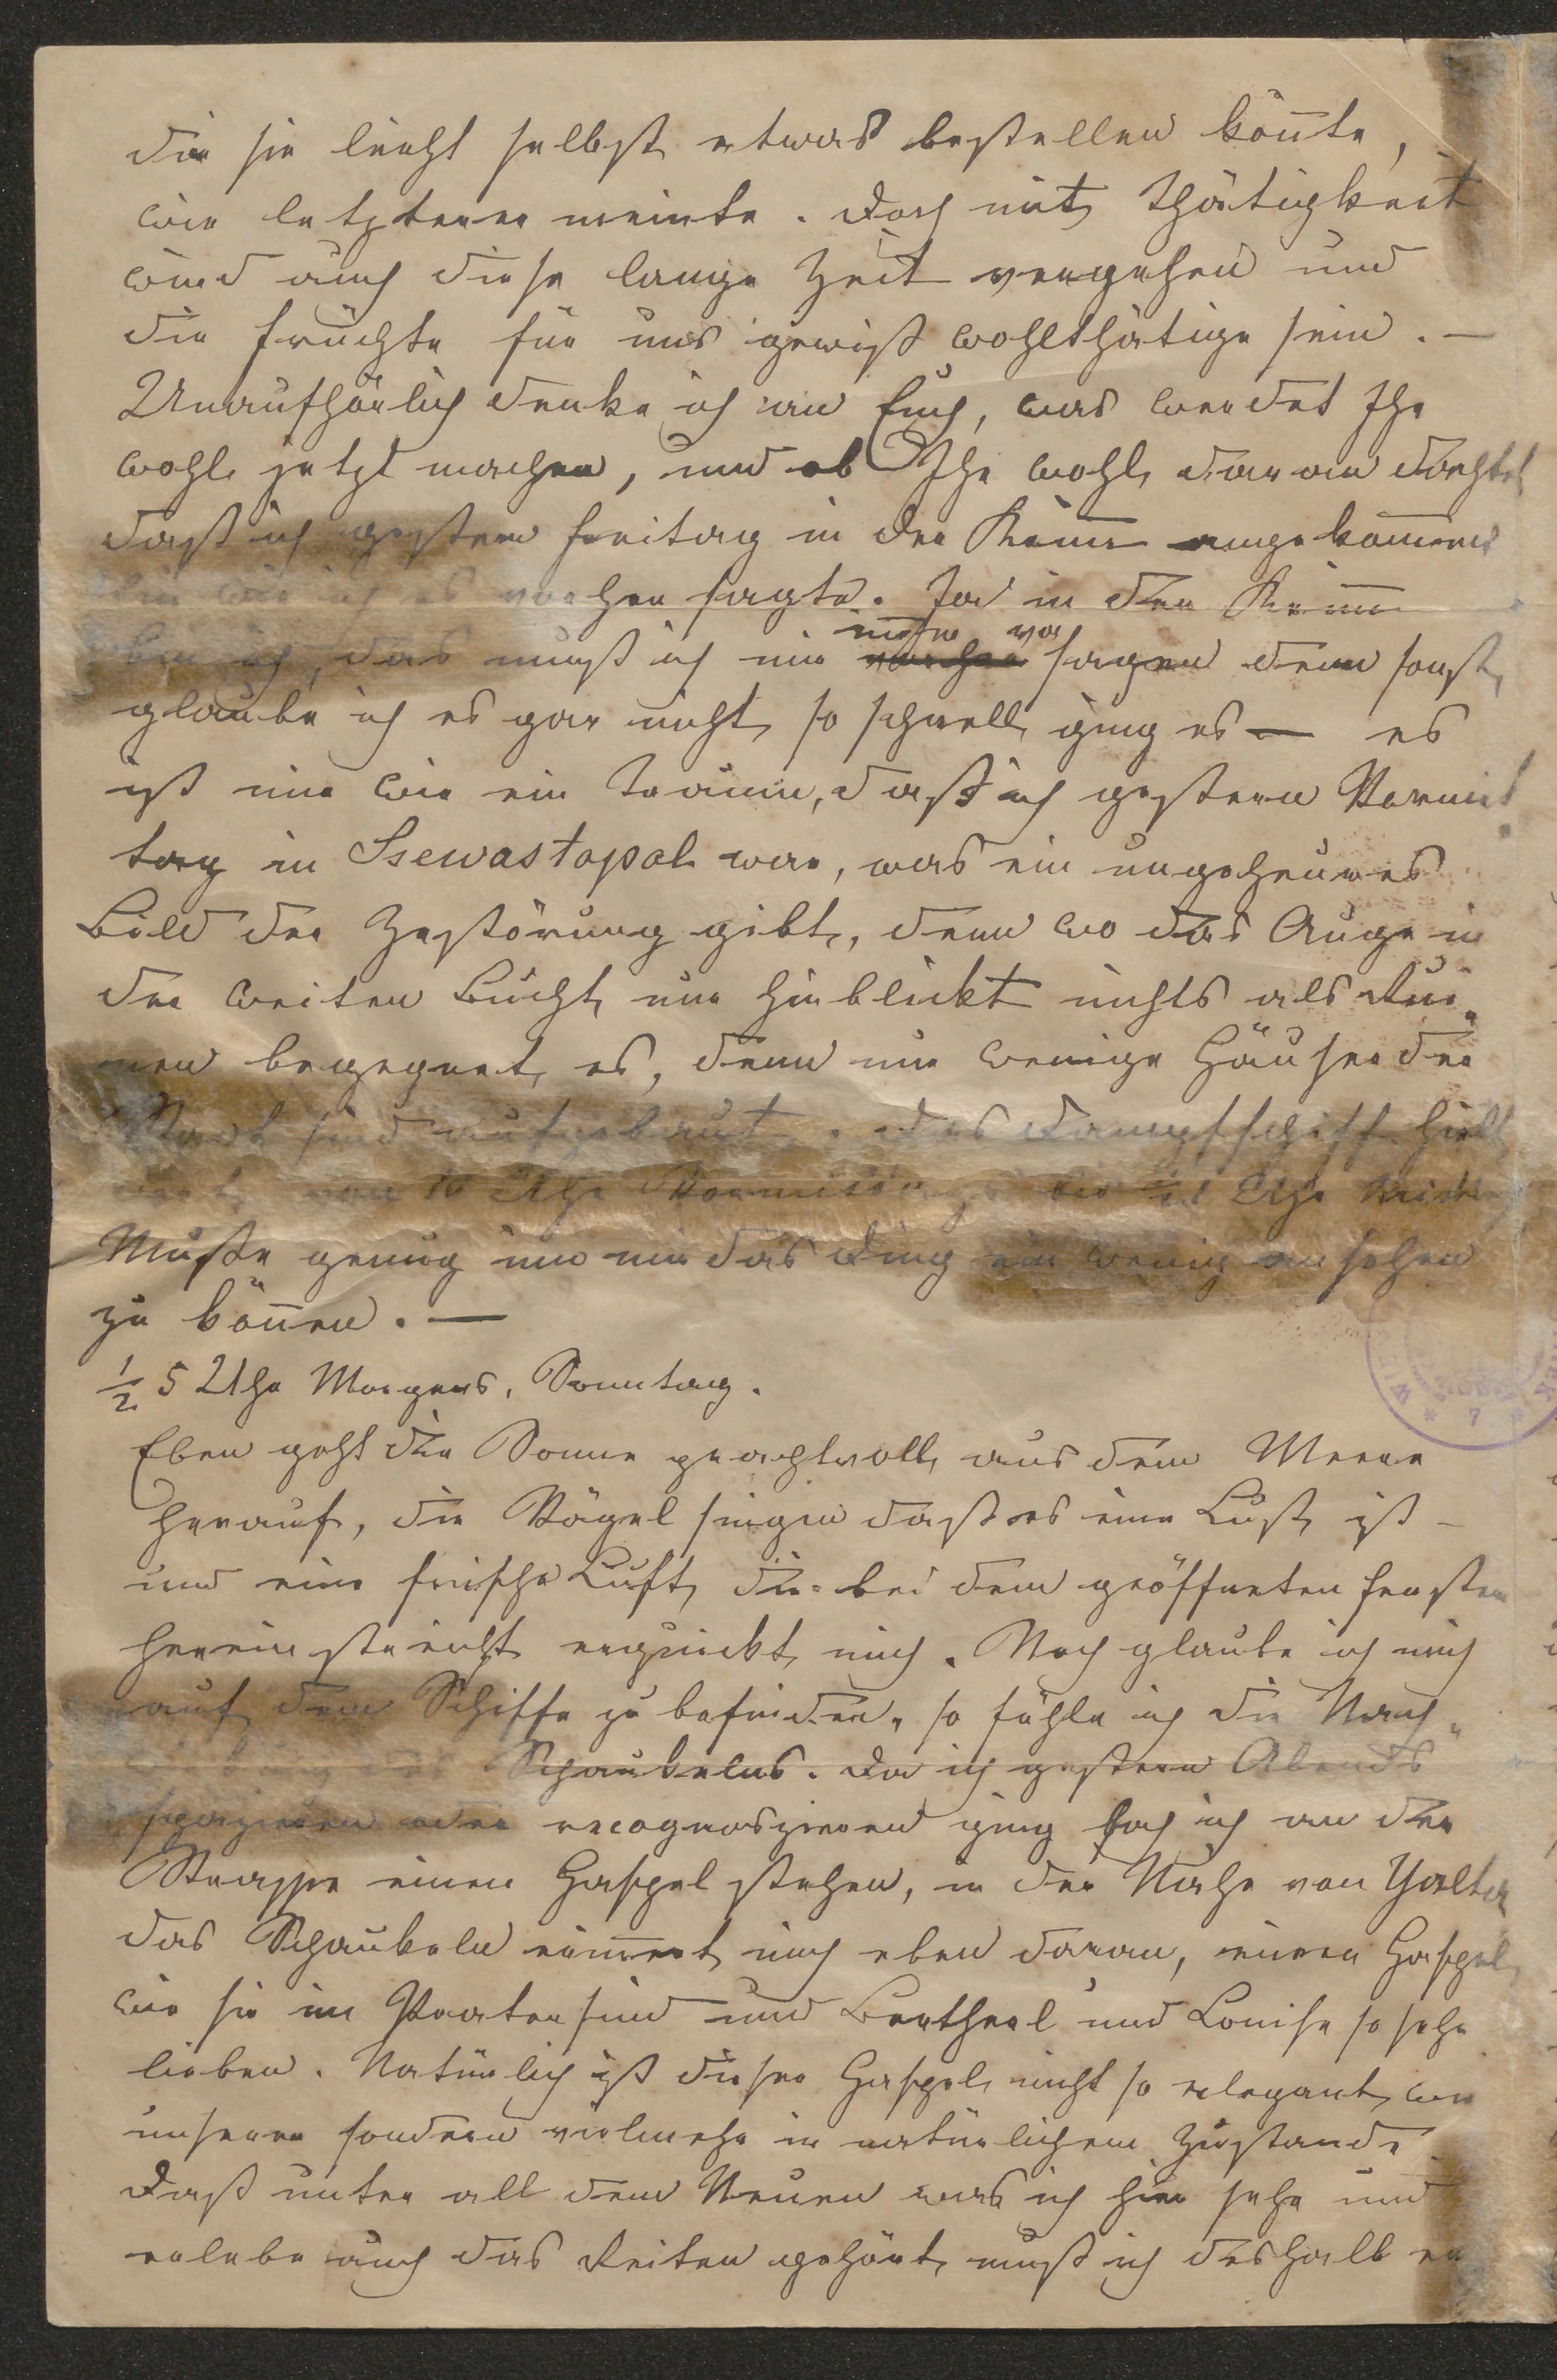 die sie leicht selbst etwas bestellen könnte,
wie letzterer meinte. Doch mit Thätigkeit
wird auch diese lange Zeit vergehen und
die Früchte für uns gewiß wohlthätige sein. —
Unaufhörlich denke ich an Euch, was werdet Ihr
wohl jetzt machen, und ob Ihr wohl daran dachtet
daß ich gestern Freitag in der Krim̄ angekom̄en
bin wie ich es vorher sagte. Ja in der Krim̄
bin ich, das muß ich mir sagen denn sonst
mehr vor
glaube ich es gar nicht, so schnell ging es — es
ist mir wie ein Traum, daß ich gestern Vormit
tag in Ssewastopol war, was ein ungeheures
Bild der Zerstörung gibt, denn wo das Auge in
der weiten Bucht nur hinblickt nichts als Rui„
nen begegnet es, denn nur wenige Häuser der
Stadt sind aufgebaut. Das Dampfschiff hielt
von 10 Uhr Vormittags bis 1 Uhr
Muße genug um mir das Ding ein wenig ansehen
zu kön̄en. —
½ 5 Uhr Morgens, Sonntag.
Eben geht die Sonne prachtvoll aus dem Meere
herauf, die Vögel singen daß es eine Lust ist —
und eine frische Luft, die bei dem geöffneten Fenster
hereinstreicht erquickt mich. Noch glaube ich mich
auf dem Schiffe zu befinden, so fühle ich die Nach„
des Schaukelns. Da ich gestern Abends
spazieren oder recognoszieren ging sah ich an der
Strasse einen Haspel stehen, in der Nähe von Yalta
das Schaukeln erin̄ert mich eben daran, einen Haspel
wie sie im Prater sind und Bertherl und Louise so sehr
lieben. Natürlich ist dieser Haspel nicht so elegant wie
unserer sondern vielmehr in natürlichem Zustande
Daß unter all dem Neuen was ich hier sehe und
erlebe auch das Reiten gehört, muß ich deshalb er